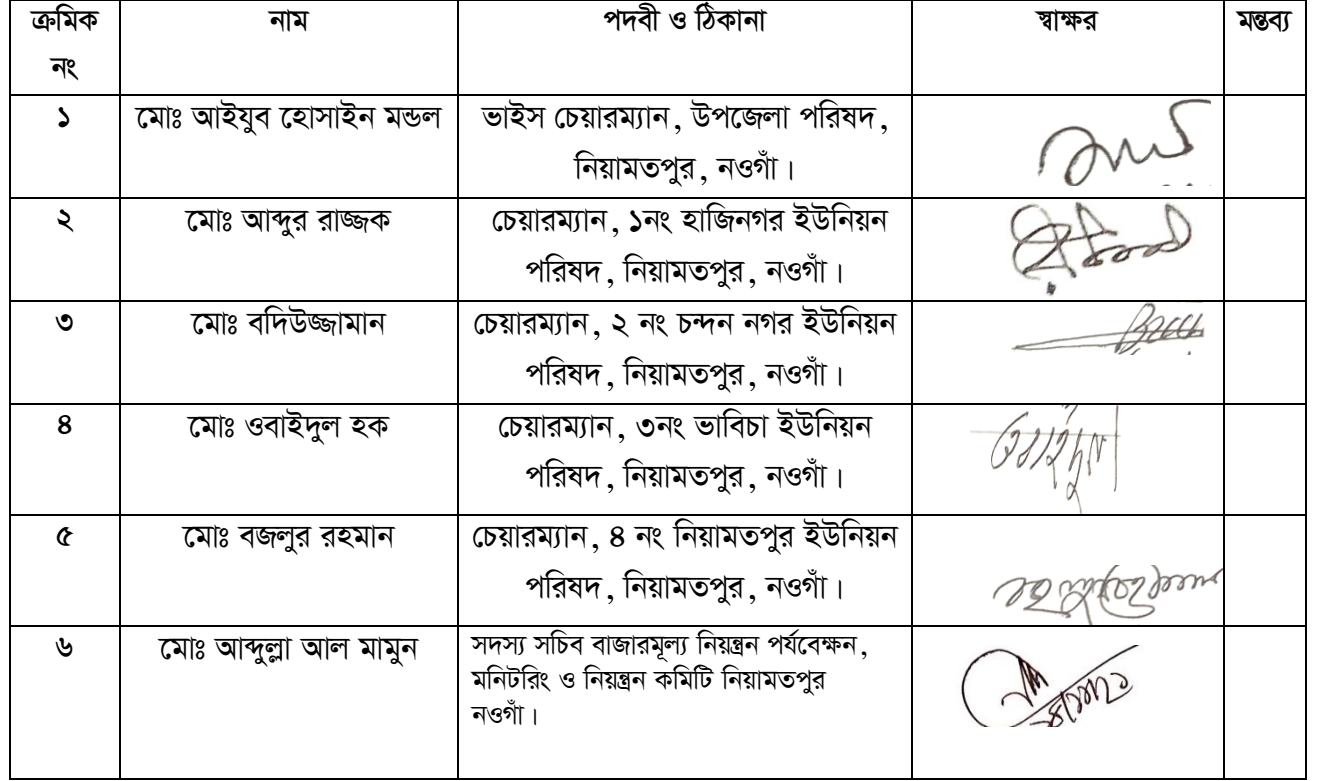 ক্রমিক নং নাম পদবী ও ঠিকানা স্বাক্ষর মন্তব্য
১ মোঃ আইযুব হোসাইন মন্ডল ভাইস চেয়ারম্যান, উপজেলা পরিষদ,
নিয়ামতপুর, নওগাঁ।
২ মোঃ আব্দুর রাজ্জক চেয়ারম্যান, ১নং হাজিনগর ইউনিয়ন
পরিষদ, নিয়ামতপুর, নওগাঁ।
৩ মোঃ বদিউজ্জামান চেয়ারম্যান, ২ নং চন্দন নগর ইউনিয়ন
পরিষদ, নিয়ামতপুর, নওগাঁ।
৪ মোঃ ওবাইদুল হক চেয়ারম্যান, ৩নং ভাবিচা ইউনিয়ন
পরিষদ, নিয়ামতপুর, নওগাঁ।
ওবাইদুল
৫ মোঃ বজলুর রহমান চেয়ারম্যান, ৪ নং নিয়ামতপুর ইউনিয়ন
পরিষদ, নিয়ামতপুর, নওগাঁ।
৬ মোঃ আব্দুল্লা আল মামুন সদস্য সচিব বাজারমূল্য নিয়ন্ত্রন পর্যবেক্ষন,
মনিটরিং ও নিয়ন্ত্রন কমিটি নিয়ামতপুর
নওগাঁ।